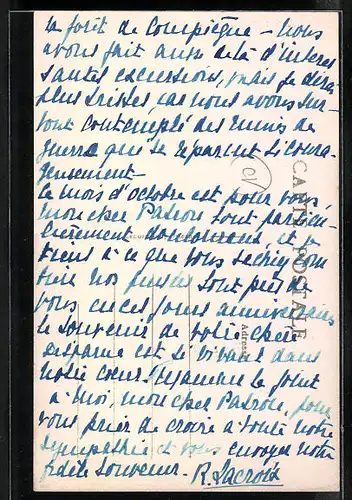 la forêt de Compiègne - Nous
avons fait aussi delà d'interes
santes excursions, mais je dirai
plus tristes, car nous avons sur-
tout contemplé des ruines de
guerre qui se réparent si coura-
geusement -
Le mois d'octobre est pour vous,
mon cher Patron tout particu-
lièrement douloureux, et je
tiens à ce que vous sachiez com
bien nos pensées sont près de
vous en ces jours anniversaires
le souvenir de votre chère
disparue est si vivant dans
notre cœur. Mejanine se joint
à moi, mon cher Patron, pour
vous prier de croire à toute notre
sympathie et vous envoyer notre
fidèle souvenir - R. Lacroix
CARTE POSTALE
Adresse